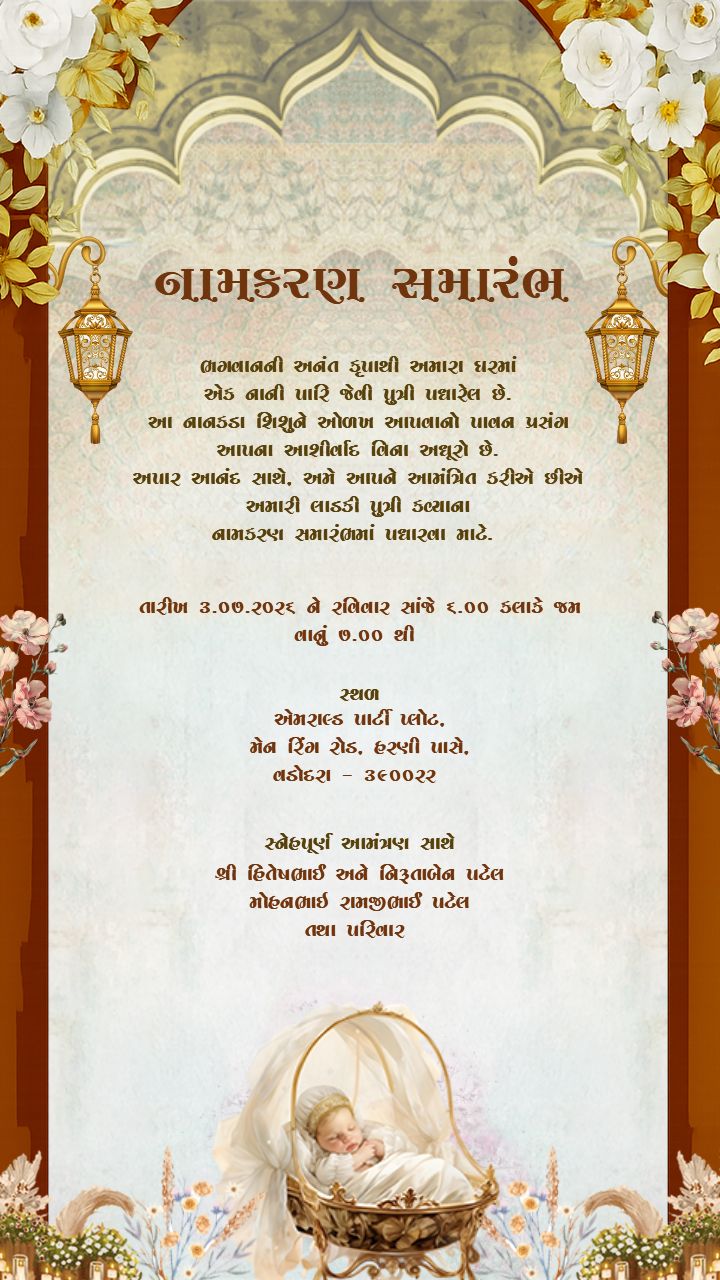 નામકરણ સમારંભ
ભગવાનની અનંત કૃપાથી અમારા ઘરમાં
એક નાની પારિ જેવી પુત્રી પધારેલ છે.
આ નાનકડા શિશુને ઓળખ આપવાનો પાવન પ્રસંગ
આપના આશીર્વાદ વિના અધૂરો છે.
અપાર આનંદ સાથે, અમે આપને આમંત્રિત કરીએ છીએ
અમારી લાડકી પુત્રી કવ્યાના
નામકરણ સમારંભમાં પધારવા માટે.
તારીખ ૩.૦૭.૨૦૨૬ ને રવિવાર સાંજે ૬.૦૦ કલાકે જમ
વાનું ૭.૦૦ થી
સ્થળ
એમરાલ્ડ પાર્ટી પ્લોટ,
મેન રિંગ રોડ, હરણી પાસે,
વડોદરા - ૩૯૦૦૨૨
સ્નેહપૂર્ણ આમંત્રણ સાથે
શ્રી હિતેષભાઈ અને નિરૂતાબેન પટેલ
મોહનભાઇ રામજીભાઈ પટેલ
તથા પરિવાર